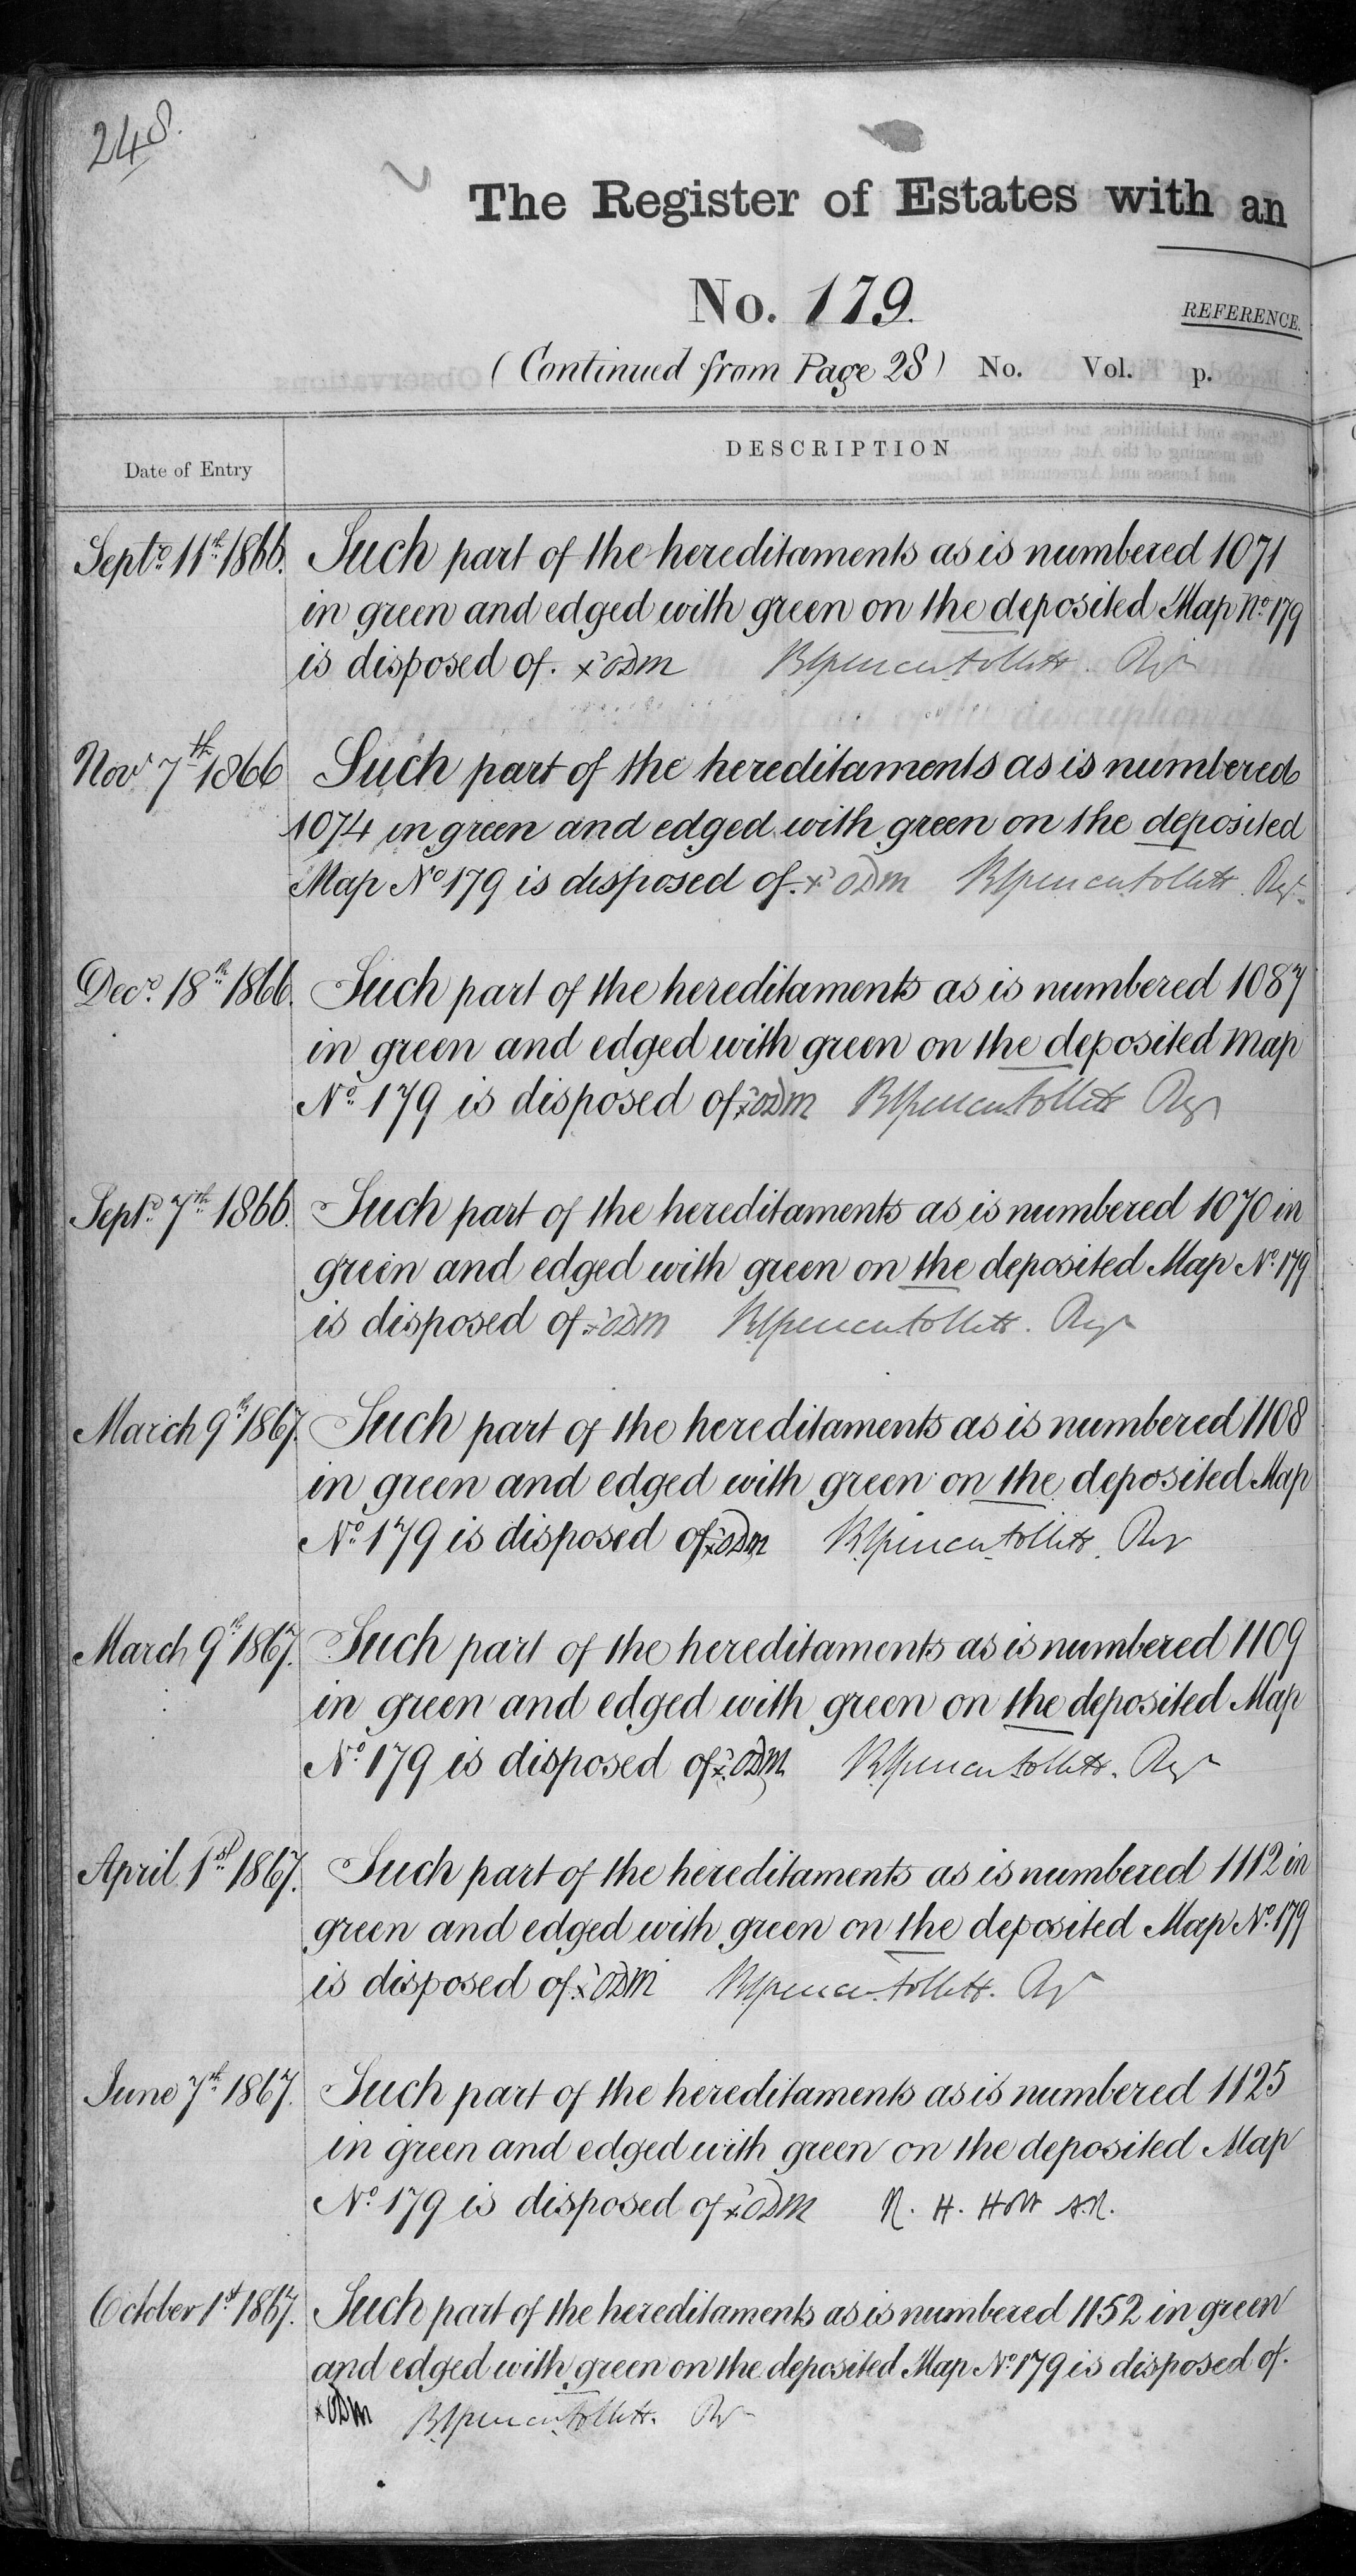 248.
The Register of Estates with an
No. 179.
REFERENCE.
(Continued from Page 28) No. Vol. p.
DESCRIPTION
Date of Entry
Septr. 11th 1866. Such part of the hereditaments as is numbered 1071
in green and edged with green on the deposited Map No. 179
is disposed of. x ODM BSpencer Follett. Regr
Novr 7th 1866 Such part of the hereditaments as is numbered
1074 in green and edged with green on the deposited
Map No 179 is disposed of. x ODM BSpencer Follett Regr
Decr. 18th 1866. Such part of the hereditaments as is numbered 1087
in green and edged with green on the deposited Map
No. 179 is disposed of x ODM BSpencer Follett Regr
Septr. 7th 1866. Such part of the hereditaments as is numbered 1070 in
green and edged with green on the deposited Map No. 179
is disposed of x ODM BSpencer Follett. Regr
March 9th 1867. Such part of the hereditaments as is numbered 1108
in green and edged with green on the deposited Map
No. 179 is disposed of x ODM BSpencer Follett. Regr
March 9th 1867. Such part of the hereditaments as is numbered 1109
in green and edged with green on the deposited Map
No. 179 is disposed of x ODM BSpencer Follett. Regr
April 1st 1867. Such part of the hereditaments as is numbered 1112 in
green and edged with green on the deposited Map No. 179
is disposed of x ODM BSpencer Follett. Regr
June 7th 1867. Such part of the hereditaments as is numbered 1125
in green and edged with green on the deposited Map
No. 179 is disposed of x ODM R. H. Holt A.R.
October 1st 1867. Such part of the hereditaments as is numbered 1152 in green
and edged with green on the deposited Map No. 179 is disposed of.
x ODM BSpencer Follett. Regr